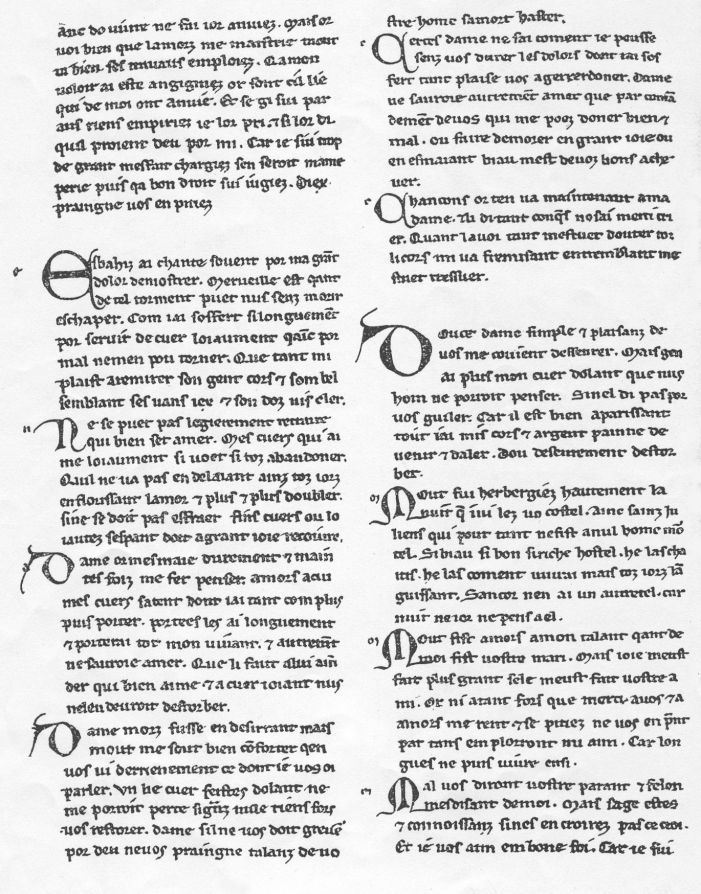 Ainc do vivre ne fui ior anviez. Mais or
voi bien que lamorz me maistrie mout
ia bien ses travaus emploiez. Qamon
voloir ai este angigniez or sont cil lie
qui de moi ont anvie. Et se gi sui par
aus riens empiriez ie lor pri ⁊ si lor di
quil proient deu por mi. Car ie sui trop
de grant mesfait chargiez sen seroit mame
perie puis qa bon droit sui iugiez. Diex
praingne vos en pitiez
e
Esbahiz ai chante sovent por ma grāt
dolor demostrer. Merveille est qant
de tel torment puet nus senz morir
eschaper. Com iai soffert si longuemēt
por servir de cuer loiaument qāic por
mal nemen pou torner. Que tant mi
plaist aremirer son gent cors ⁊ som bel
semblant ses vans iex ⁊ son doz vis cler.
n
Ne se puet pas legierement retraire
qui bien set amer. Mes cuers qui ai
me loiaument si voet si toz abandoner.
Qaul ne va pas en delaiant ainz toz iorz
enflorissant lamor ⁊ plus ⁊ plus doubler.
sine se doit pas effraer fins cuers ou lo
iautez sespant doit a grant ioie recovre.
d
Dame or mesmaie durement ⁊ main
tes foiz me fet penser. amors acui
mes cuers satent dont iai tant com plus
puis porter. portees les ai longuement
⁊ porterai tot mon vivant. ⁊ autremēt
ne sauroie amer. Que li fait a lui ain
der qui bien aime ⁊ a cuer ioiant nus
nelen devroit destorber.
Dame morz fusse en desirrant mais
mout me sont bien cōforter qen
vos vi derrienement ce dont ie vos oi
parler. Vn he cuer festes dolant ne
me porroit perte sigrāz nule riens fors
vos restorer. dame silne vos doit grevē
por deu nevos praingne talanz de vo
stre home samort haster.
c
Certes dame ne sai coment ie poisse
senz vos durer les dolors dont iai sos
fert tant plaise vos aguerredoner. Dame
ne sauroie autremēt amer que par comā
dement de vos qui me poez doner bien ⁊
mal. ou faire demorer en grant ioie ou
en esmaiant biau mest de voz bons ache
ver.
c
Chancons or ten va maintenant a ma
dame. Tu di tant conqs no sai merci cri
er. Quant la voi tant mestuet douter toz
li cors mi va fremissant entremblant me
stuet tressuer.
Douce dame simple ⁊ plaisanz de
vos me covient dessevrer. Mais gen
ai plus mon cuer dolant que nus
hom ne porroit penser. Sinel di pas por
vos guiler. Car il est bien aparissant
tout iai mis cors ⁊ argent painne de
venir ⁊ daler. Dou destinement destor
ber.
m
Mout fui herbergiez hautement la
nuit q̄ iiui lez vo costel. Ainc sainz Iu
liens qui pout tant nefist anul home mō
tel. Si biau si bon si riche hostel. he las cha
itis. he las coment vivrai mais toz iorz lā
guissant. Sancor nen ai un autretel. car
nuit ne ior ne pens a el.
m
Mout fist amors amon talant qant de
moi fist vostre mari. Mais ioie meust
fait plus grant sele meust fait vostre a
mi. Or ni atant fors que merci. avos ⁊ a
amors me rent ⁊ se pitiez ne vos en p̄nt
par tans em plorront mi ami. Car lon
gues ne puis vivre ensi.
m
Mal vos diront vostre parant ⁊ felon
mesdisant de moi. Mais sage estes
⁊ connoissanz sines en croirez pas ce croi.
Et ie vos aim em bone foi. Car ie sui